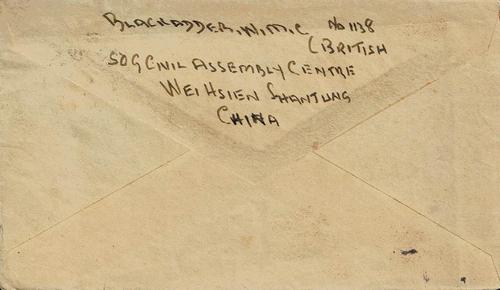 BLACKADDER, W.M.C No 1138
(BRITISH
SOG CIVIL ASSEMBLY CENTRE
WEIHSIEN SHANTUNG
CHINA